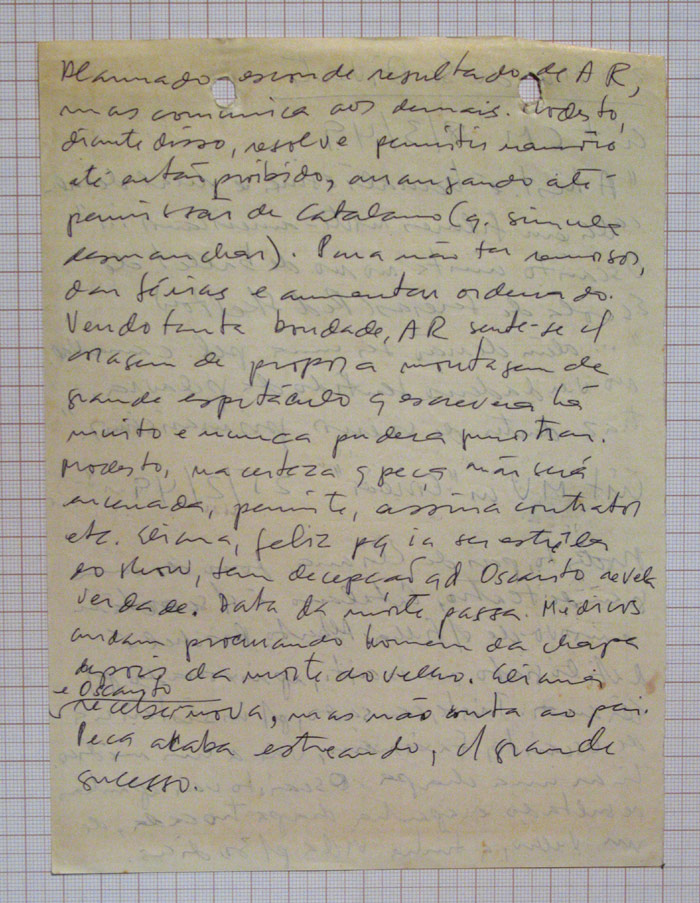 Alarmado esconde resultado de AR,
mas comunica aos demais. Modesto,
diante disso, resolve permitir namôro
até então proibido, arranjando até
permissão de Catalano (q. simula
desmanchar). Para não ter remorsos,
dar férias e aumentar ordenado.
Vendo tanta bondade, AR sente-se c/
coragem de propor a montagem de
grande espetáculo q escrevera há
muito e nunca pudera mostrar.
Modesto, na certeza q peça não será
encenada, permite, assina contratos
etc. Eliana, feliz pq ia ser estrêla
do show, tem decepção qd Oscarito revela
verdade. Data da morte passa. Médicos
andam procurando homem da chapa
depois da morte do velho. Eliana
e Oscarito
recebem nova, mas não conta ao pai.
Peça acaba estreando, c/ grande
sucesso.